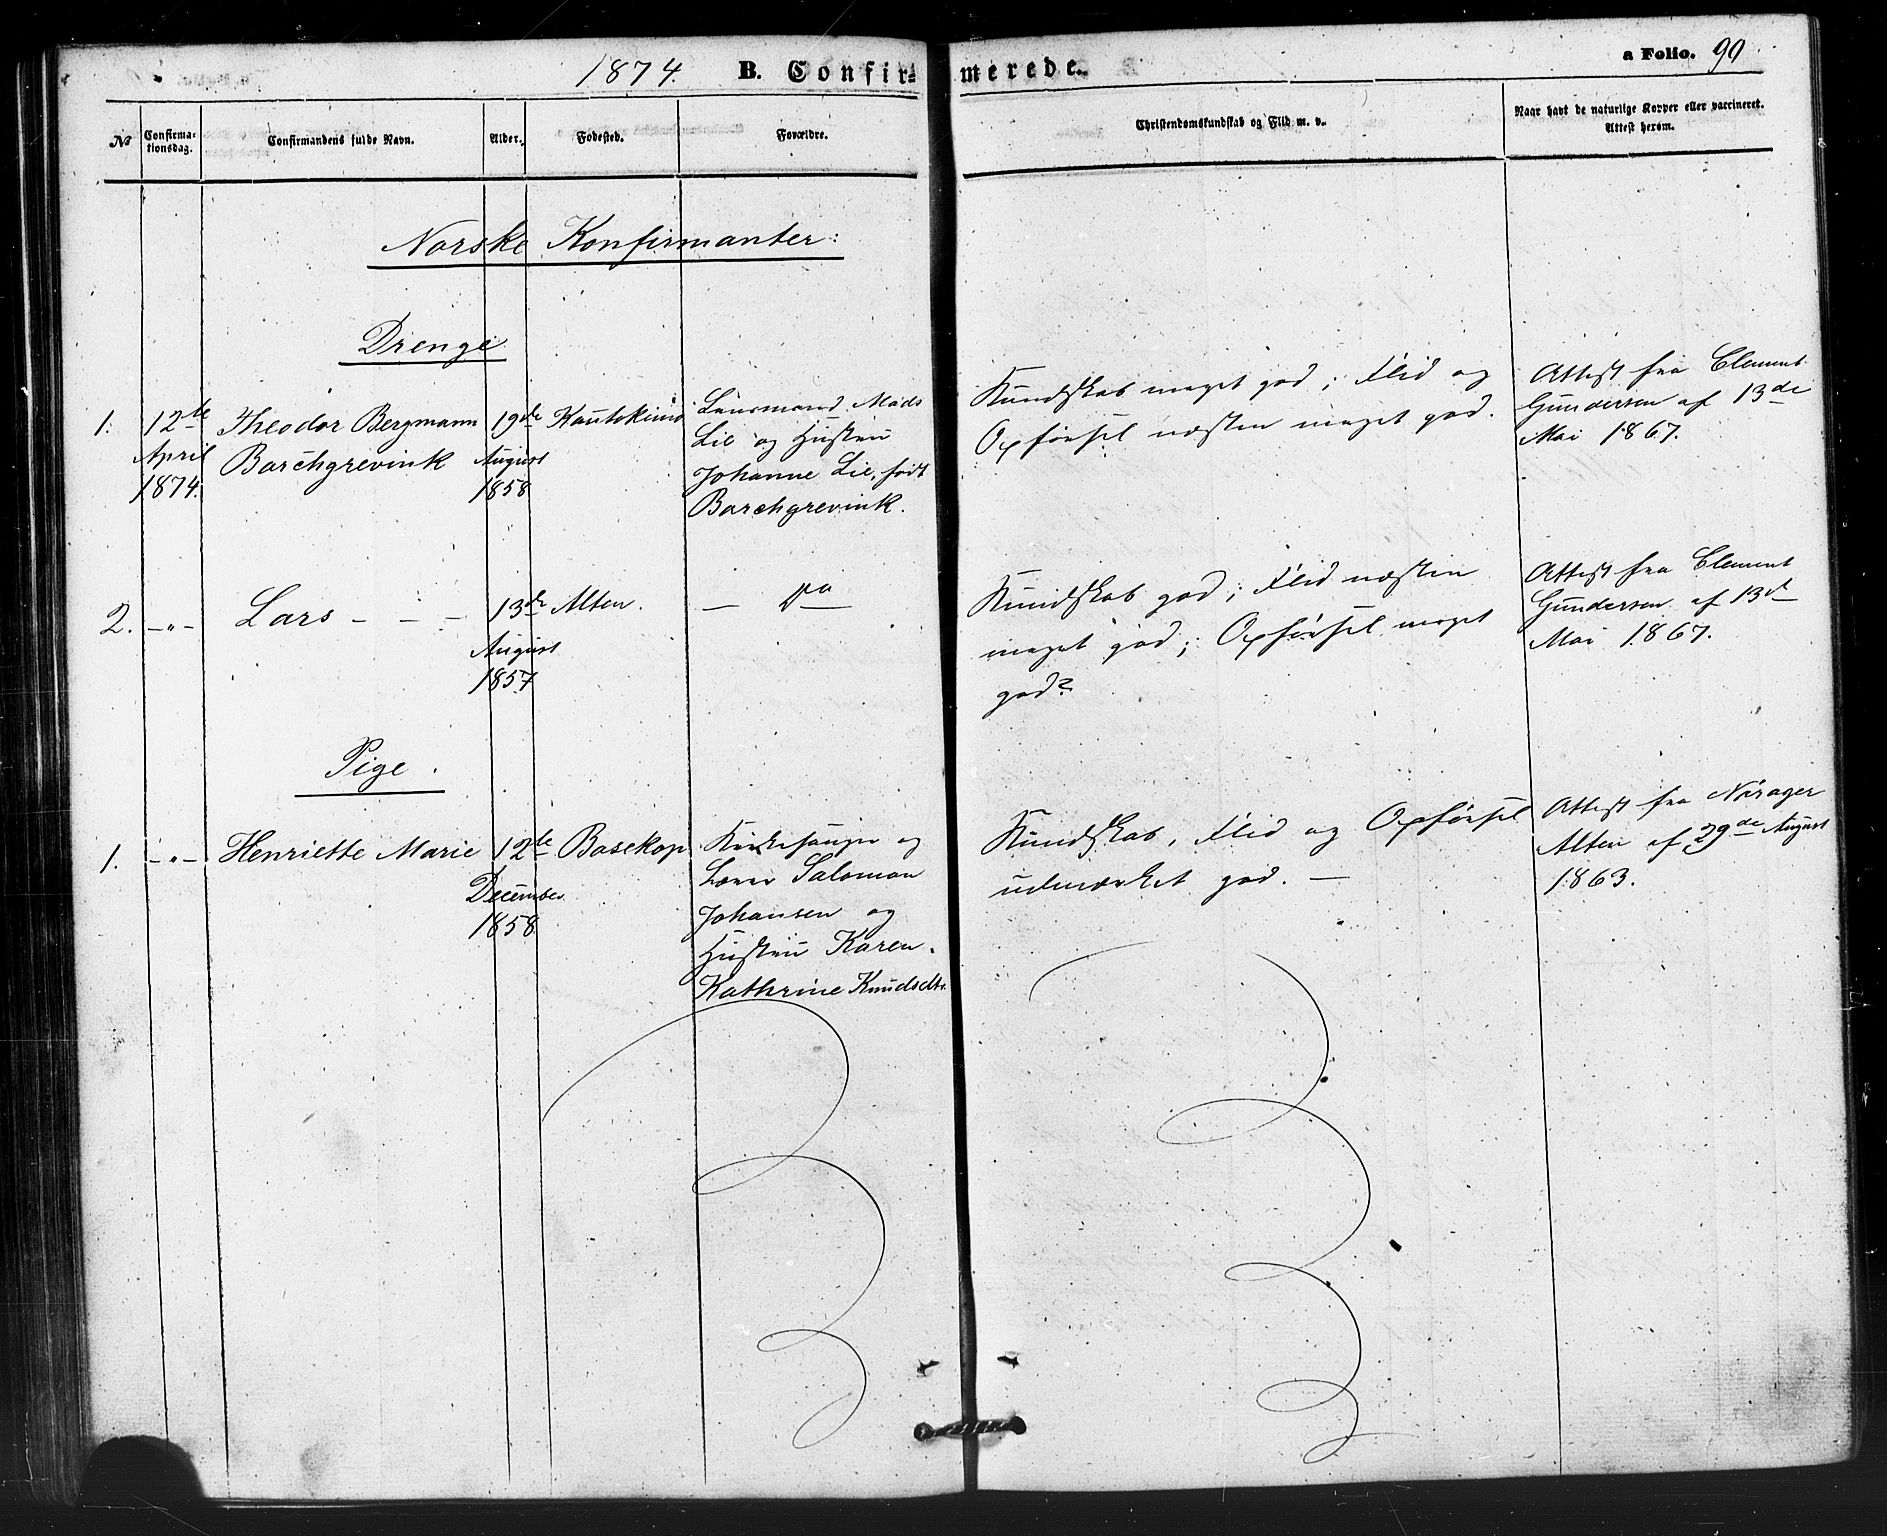 1874. B. Confirmerede. a Folio. 90
No
Confirmationsdag.
Confirmandens fulde Navn.
Alder.
Fødested.
Forældre.
Christendomskundskab og Flid m. v.
Naar havt de naturlige Kopper eller vaccineret.
Attest herom.
Norske Konfirmanter:
Drenge
1.
12te
April
1874.
Theodor Bergmann
Barchgrevink
19de
August
1858
Kautokeino
Lensmand Mads
Lie og Hustru
Johanne Lie, født
Barchgrevink.
Kundskab meget god; Flid og
Opførsel næsten meget god.
Attest fra Clement
Gundersen af 13de
Mai 1867.
2.
-"-
Lars - - -
13de
August
1857
Alten.
- Do -
Kundskab god; Flid næsten
meget god; Opførsel meget
god?
Attest fra Clement
Gundersen af 13de
Mai 1867.
Pige.
1.
-"-
Henriette Marie
12te
December
1858
Bosekop
Kirkesanger og
Lærer Salomon
Johansen og
Hustru Karen
Kathrine Knudsdtr.
Kundskab, Flid og Opførsel
udmærket god. -
Attest fra Norager
Alten af 29de August
1863.